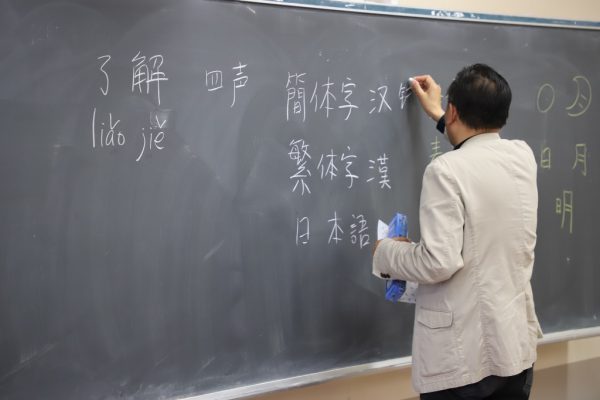 了解 四声 簡体字 汉
liǎo jiě
繁体字 漢
日本語
日 月
明